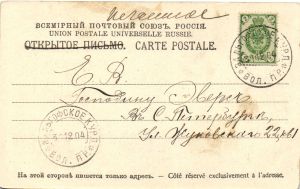 Печатное
ВСЕМІРНЫЙ ПОЧТОВЫЙ СОЮЗЪ. РОССІЯ.
UNION POSTALE UNIVERSELLE RUSSIE.
ОТКРЫТОЕ ПИСЬМО. CARTE POSTALE.
Е. В.
Господину
Въ С. Петербургъ,
Ул. Жуковскаго 22,
12 04
На этой сторонѣ пишется только адресъ. – Côté réservé exclusivement à l'adresse.